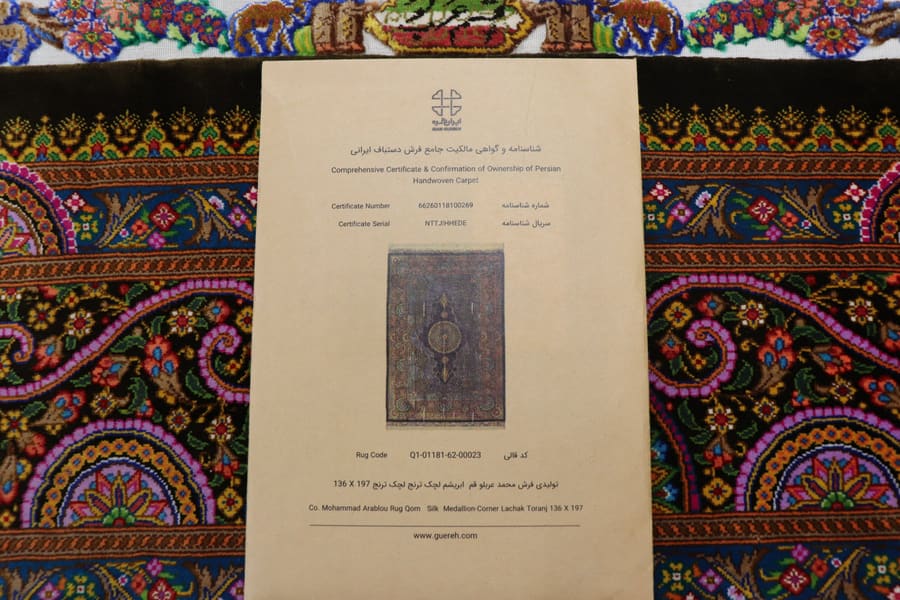 ایران گره
IRAN GUEREH
شناسنامه و گواهی مالکیت جامع فرش دستباف ایرانی
Comprehensive Certificate & Confirmation of Ownership of Persian
Handwoven Carpet
Certificate Number 66260118100269 شماره شناسنامه
Certificate Serial NTTJIHHEDE سریال شناسنامه
Rug Code Q1-01181-62-00023 کد قالی
تولیدی فرش محمد عربلو قم ابریشم لچک ترنج لچک ترنج 197 X 136
Co. Mohammad Arablou Rug Qom Silk Medallion-Corner Lachak Toranj 136 X 197
www.guereh.com